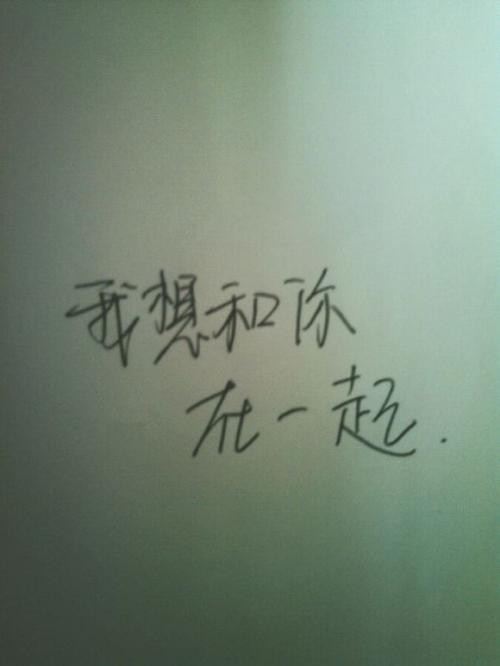 我想和你
在一起.